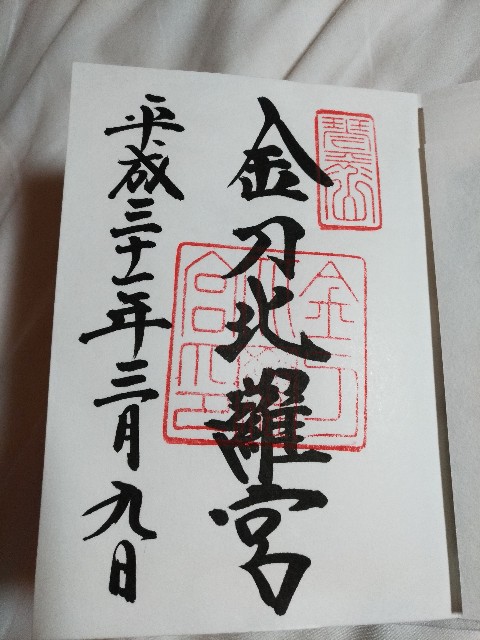 琴平山
金刀比羅宮
平成三十一年三月九日